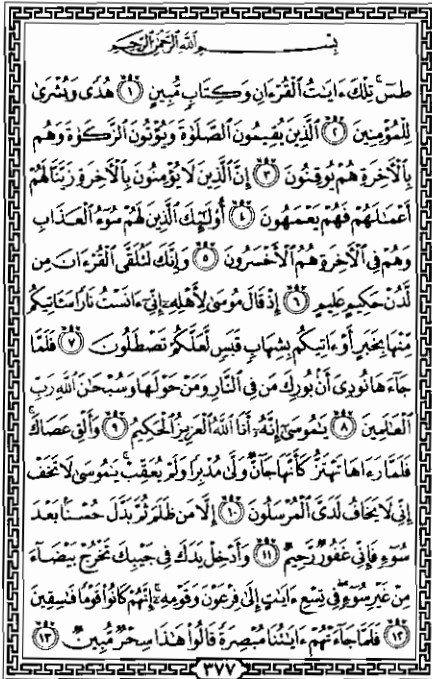 بِسْمِ ٱللَّهِ ٱلرَّحْمَٰنِ ٱلرَّحِيمِ
طسٓ ۚ تِلْكَ ءَايَٰتُ ٱلْقُرْءَانِ وَكِتَابٍ مُّبِينٍ ١ هُدًى وَبُشْرَىٰ
لِلْمُؤْمِنِينَ ٢ ٱلَّذِينَ يُقِيمُونَ ٱلصَّلَوٰةَ وَيُؤْتُونَ ٱلزَّكَوٰةَ وَهُم
بِٱلْءَاخِرَةِ هُمْ يُوقِنُونَ ٣ إِنَّ ٱلَّذِينَ لَا يُؤْمِنُونَ بِٱلْءَاخِرَةِ زَيَّنَّا لَهُمْ
أَعْمَٰلَهُمْ فَهُمْ يَعْمَهُونَ ٤ أُو۟لَٰٓئِكَ ٱلَّذِينَ لَهُمْ سُوٓءُ ٱلْعَذَابِ
وَهُمْ فِى ٱلْءَاخِرَةِ هُمُ ٱلْأَخْسَرُونَ ٥ وَإِنَّكَ لَتُلَقَّى ٱلْقُرْءَانَ مِن
لَّدُنْ حَكِيمٍ عَلِيمٍ ٦ إِذْ قَالَ مُوسَىٰ لِأَهْلِهِۦٓ إِنِّىٓ ءَانَسْتُ نَارًا سَـَٔاتِيكُم
مِّنْهَا بِخَبَرٍ أَوْ ءَاتِيكُم بِشِهَابٍ قَبَسٍ لَّعَلَّكُمْ تَصْطَلُونَ ٧ فَلَمَّا
جَآءَهَا نُودِىَ أَنۢ بُورِكَ مَن فِى ٱلنَّارِ وَمَنْ حَوْلَهَا وَسُبْحَٰنَ ٱللَّهِ رَبِّ
ٱلْعَٰلَمِينَ ٨ يَٰمُوسَىٰٓ إِنَّهُۥٓ أَنَا ٱللَّهُ ٱلْعَزِيزُ ٱلْحَكِيمُ ٩ وَأَلْقِ عَصَاكَ ۚ
فَلَمَّا رَءَاهَا تَهْتَزُّ كَأَنَّهَا جَآنٌّ وَلَّىٰ مُدْبِرًا وَلَمْ يُعَقِّبْ ۚ يَٰمُوسَىٰ لَا تَخَفْ
إِنِّى لَا يَخَافُ لَدَىَّ ٱلْمُرْسَلُونَ ١٠ إِلَّا مَن ظَلَمَ ثُمَّ بَدَّلَ حُسْنًۢا بَعْدَ
سُوٓءٍ فَإِنِّى غَفُورٌ رَّحِيمٌ ١١ وَأَدْخِلْ يَدَكَ فِى جَيْبِكَ تَخْرُجْ بَيْضَآءَ
مِنْ غَيْرِ سُوٓءٍ ۖ فِى تِسْعِ ءَايَٰتٍ إِلَىٰ فِرْعَوْنَ وَقَوْمِهِۦٓ ۚ إِنَّهُمْ كَانُوا۟ قَوْمًا فَٰسِقِينَ
١٢ فَلَمَّا جَآءَتْهُمْ ءَايَٰتُنَا مُبْصِرَةً قَالُوا۟ هَٰذَا سِحْرٌ مُّبِينٌ ١٣
٣٧٧